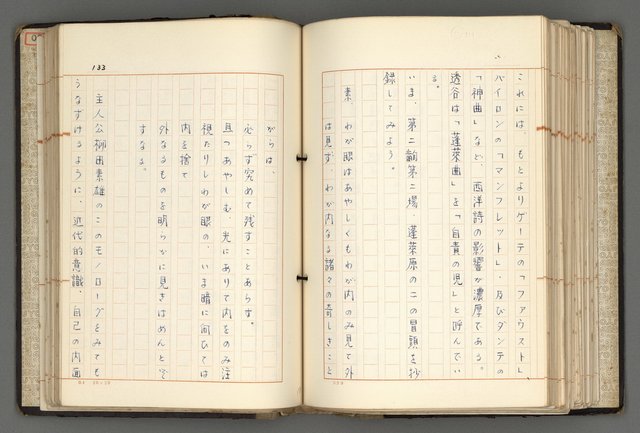 これには、もとよりゲーテの「ファウスト」、
バイロンの「マンフレット」、及びダンテの
「神曲」など、西洋詩の影響が濃厚である。
透谷は「蓬萊曲」を「自責の児」と呼んでい
る。
いま、第二齣第二場 蓬萊原の二の冒頭を抄
録してみよう。
素、わが眼はあやしくもわが内をのみ見て外
は見ず、わが内なる諸々の奇しきこと
133
がらは、
必らず究めて残すことあらず。
且つあやしむ、光にありて内をのみ注
視たりしわが眼の、いま暗に向ひては
内を捨て
外なるものを明らかに見きはめんとぞ
すなる。
主人公柳田素雄のこのモノローグをみても
うなずけるように、近代的意識、自己の内面
20×20